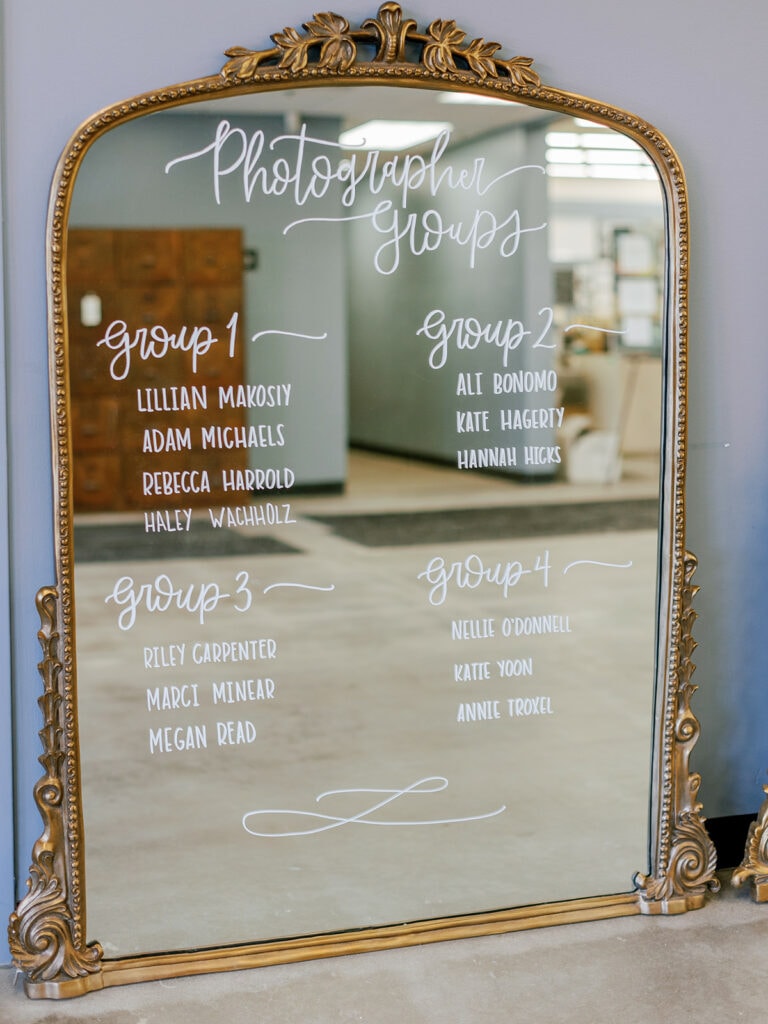 Photographer
Groups
Group 1
LILLIAN MAKOSIY
ADAM MICHAELS
REBECCA HARROLD
HALEY WACHHOLZ
Group 2
ALI BONOMO
KATE HAGERTY
HANNAH HICKS
Group 3
RILEY CARPENTER
MARCI MINEAR
MEGAN READ
Group 4
NELLIE O'DONNELL
KATIE YOON
ANNIE TROXEL